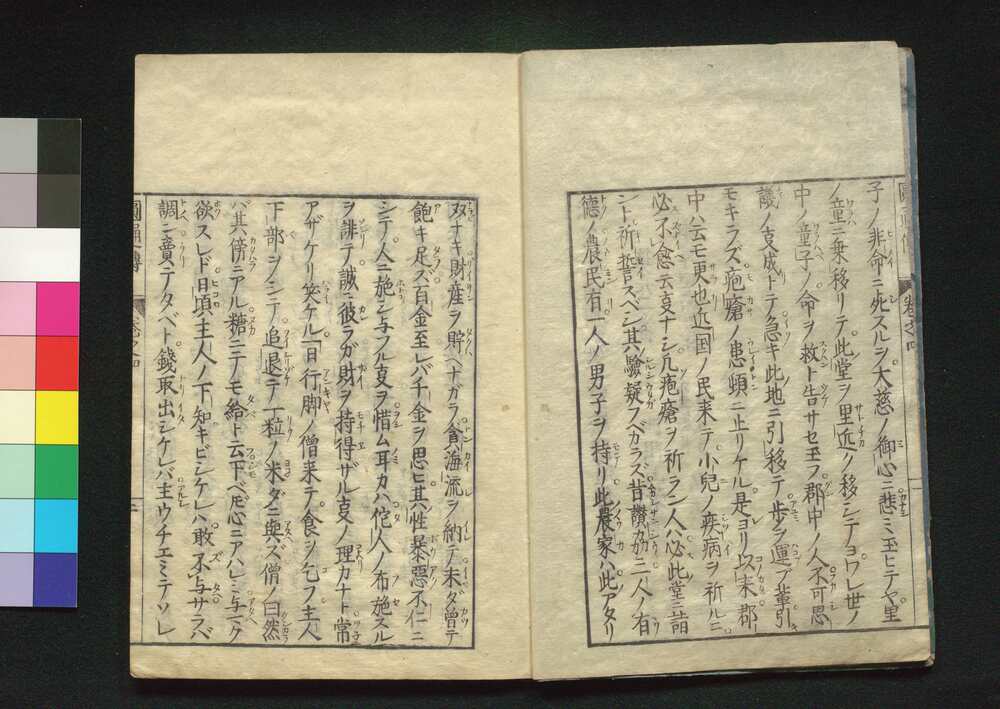 子ノ非命ニ死スルヲ大慈ノ御心ニ悲ミ玉ヒテヤ里
ノ童ニ乗移リテ此堂ヲ里近ク移シテヨワレ世ノ
中ノ童子ノ命ヲ救ト告サセ玉フ郡中ノ人不可思
議ノ支成トテ急キ此地ニ引移テ歩ヲ運ブ輩引
モキラズ疱瘡ノ患頓ニ止リケル是ヨリ以来郡
中ハ云モ更也近国ノ民来テ小児ノ疾病ヲ祈ルニ
必不愈云支ナシ凡疱瘡ヲ祈ラン人ハ必此堂ニ詣
シト祈誓スベシ其驗疑フベカラズ昔讃州ニ二人ノ有
徳ノ農民有一人ノ男子ヲ持リ此農家ハ此アタリ
双ナキ財産ヲ貯ヘナガラ貪海流ヲ納テ未ダ曾テ
飽キ足ズ百金至レバ千金ヲ思ヒ其性暴悪不仁ニ
シテ人ニ施シ与フル支ヲ惜ム耳カハ佗人ノ布施スル
ヲ誹テ誠ニ彼ラガ財ヲ持得ザル支ノ理カナト常
アザケリ笑ケル一日行脚ノ僧来テ食ヲ乞フ主人
下部シシテ追退テ一粒ノ米ダニ與ズ僧ノ曰然
バ其傍ニアル糖ニテモ給ト云下ベ𪜈心ニアハレミ与ヘタク
欲スレド日頃主人ノ下知キビシケレハ敢不与サラバ
調ニ賣テタベト錢取出シケレバ主ウチエミテソレ
圓通傳
巻之四